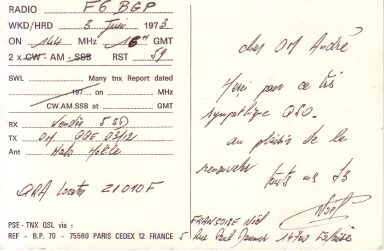 RADIO F6 BGP
WKD/HRD 3 Juin 1973
ON 144 MHz 16H GMT
2 x CW - AM - SSB RST 59
SWL Many tnx Report dated
197 on MHz
CW.AM.SSB at GMT
RX
TX
Ant Halo
QRA Locator 21010F
PSE - TNX QSL via :
REF - B.P. 70 - 75560 PARIS CEDEX 12 FRANCE
cher OM André
Merci pour ce très
sympathique QSO.
au plaisir de te
renouveler
73
Noël
FRANCOISE Noël
5 Rue Paul Doumer 14700 Falaise